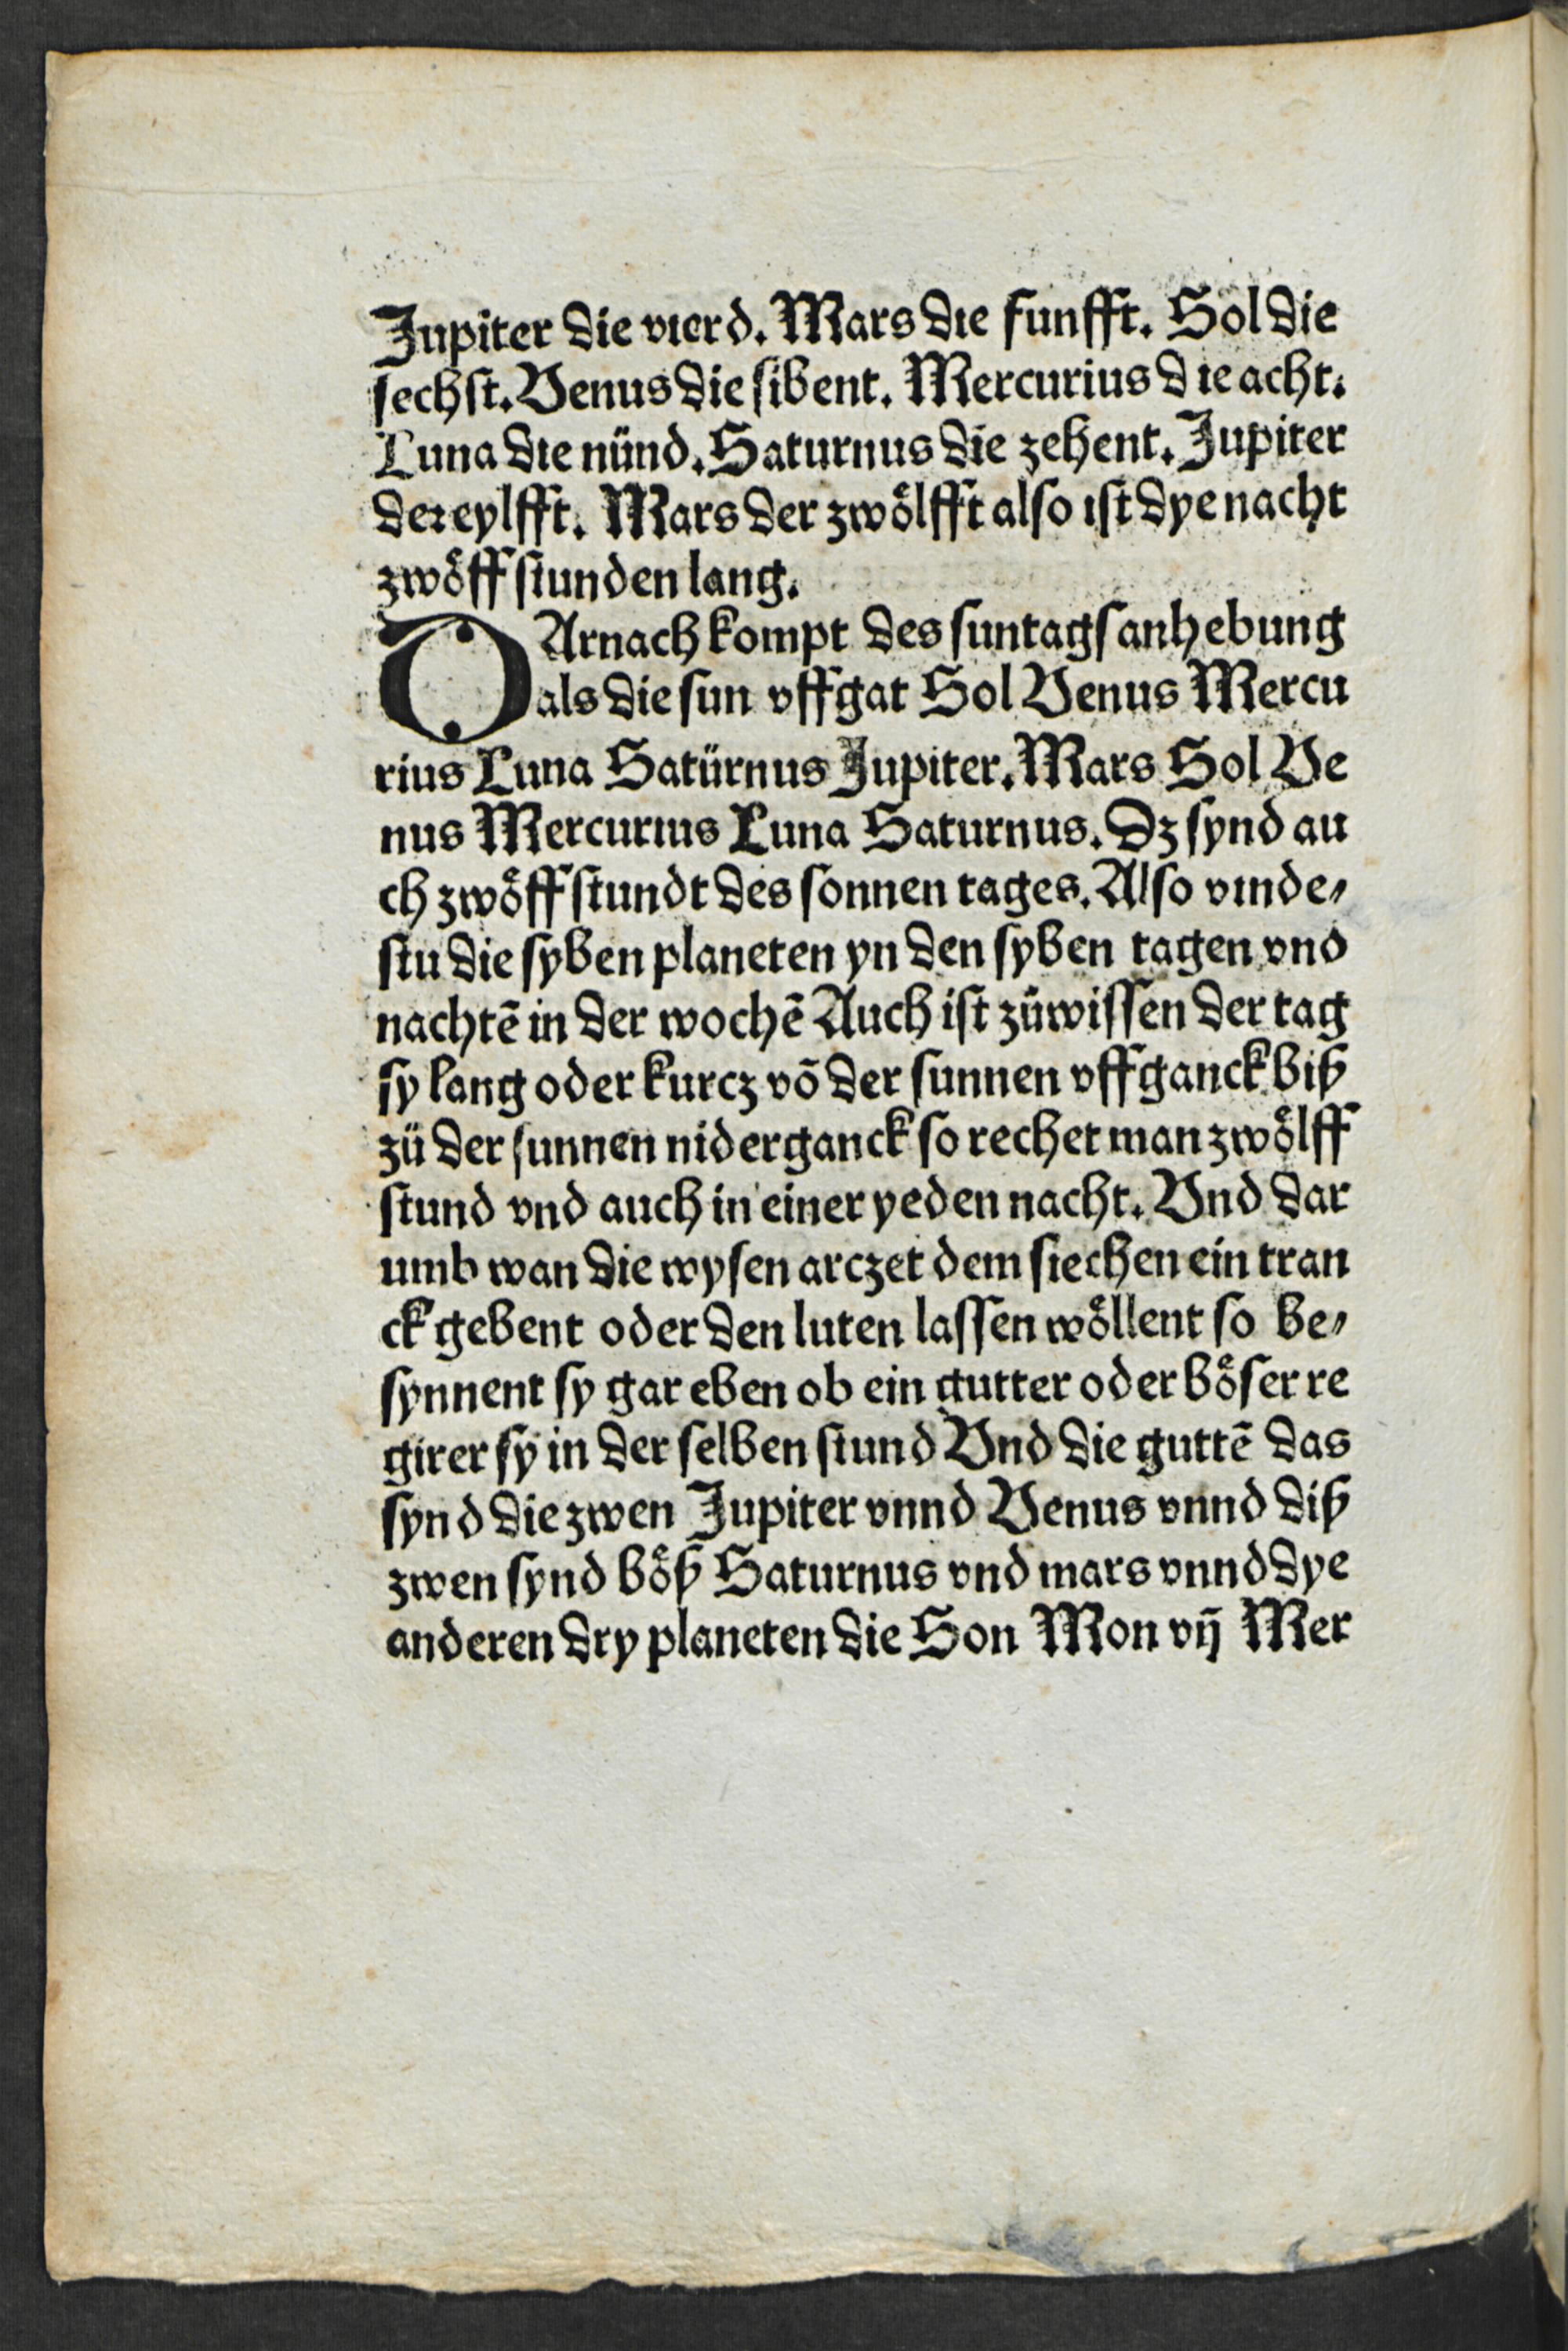 Jupiter die vierd. Mars die funfft. Sol die
sechst. Venus die sibent. Mercurius die acht.
Luna die nünd. Saturnus die zehent. Jupiter
der eylfft. Mars der zwoͤlfft also ist dye nacht
zwoͤff stunden lang.
DArnach kompt des suntags anhebung
als die sun vffgat Sol Venus Mercu
rius Luna Satürnus Jupiter. Mars Sol Ve
nus Mercurius Luna Saturnus. Dz synd au
ch zwoͤff stundt des sonnen tages. Also vinde⸗
stu die syben planeten yn den syben tagen vnd
nachtē in der wochē Auch ist züwissen der tag
sy lang oder kurcz vō der sunnen vffganck biß
zü der sunnen niderganck so rechet man zwoͤlff
stund vnd auch in einer yeden nacht. Vnd dar
umb wan die wysen arczet dem siechen ein tran
ck gebent oder den luten lassen woͤllent so be⸗
synnent sy gar eben ob ein gutter oder boͤser re
girer sy in der selben stund Vnd die guttē das
synd die zwen Jupiter vnnd Venus vnnd diß
zwen synd boͤß Saturnus vnd mars vnnd dye
anderen dry planeten die Son Mon vn̄ Mer